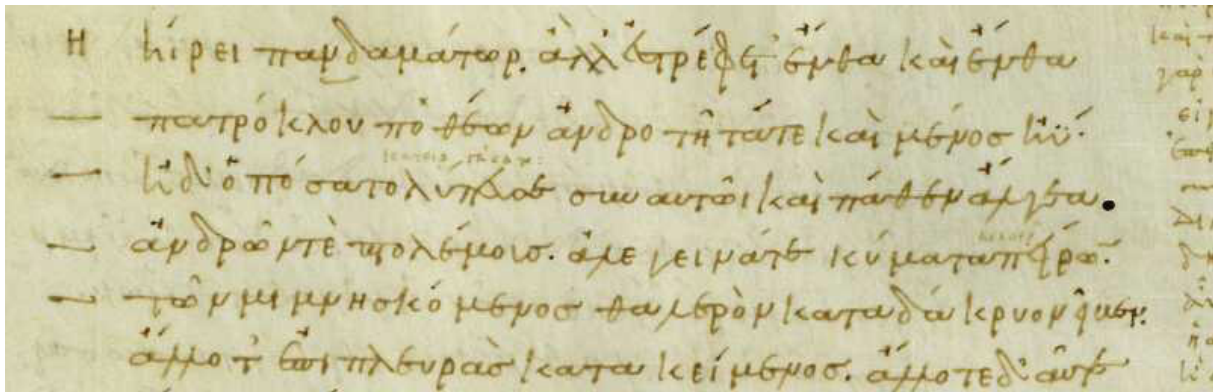 ἥιρει πανδαμάτωρ. ἀλλ' ἐστρέφετ' ἔνθα καὶ ἔνθα
πατρόκλου ποθέων ἀνδροτῆτά τε καὶ μένοσ ἠΰ.
ἠδ' ὁπόσα τολύπευσε σὺν αὐτῶι καὶ πάθεν ἄλγεα.
ἀνδρῶν τὲ πτολέμουσ. ἀλεγεινά τε κύματα πείρων.
τῶν μιμνησκόμενοσ θαλερὸν κατὰ δάκρυον εἶβεν.
ἄλλοτ' ἐπὶ πλευρὰσ κατακείμενοσ. ἄλλοτε δ' αὖτε